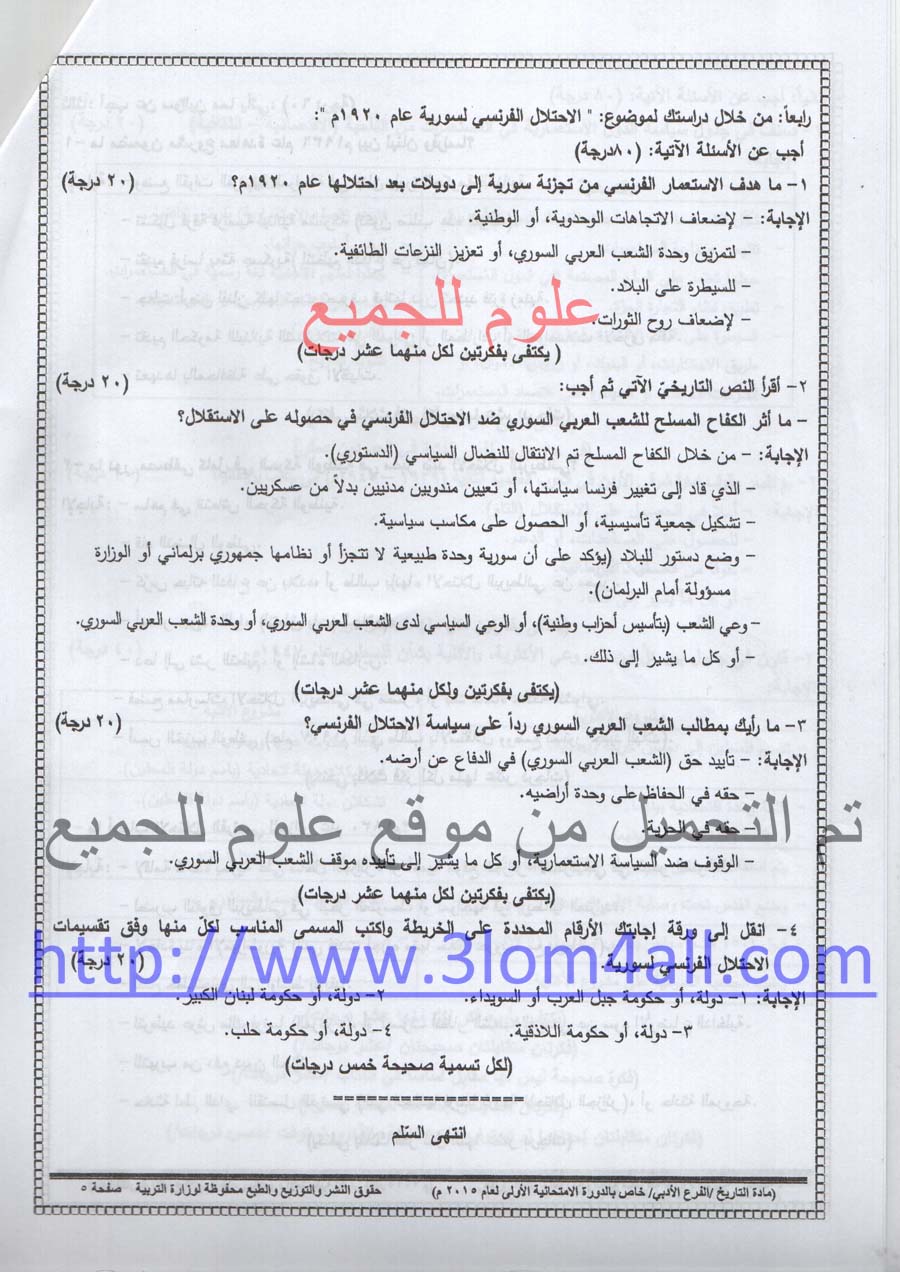 رابعاً: من خلال دراستك لموضوع: " الاحتلال الفرنسي لسورية عام ١٩٢٠م ":
أجب عن الأسئلة الآتية: (٨٠درجة)
١- ما هدف الاستعمار الفرنسي من تجزئة سورية إلى دويلات بعد احتلالها عام ١٩٢٠م؟ (٢٠ درجة)
الإجابة: - لإضعاف الاتجاهات الوحدوية، أو الوطنية.
- لتمزيق وحدة الشعب العربي السوري، أو تعزيز النزعات الطائفية.
- للسيطرة على البلاد.
علوم للجميع
- لإضعاف روح الثورات.
( يكتفى بفكرتين لكل منهما عشر درجات)
٢- أقرأ النص التاريخيّ الآتي ثم أجب: (٢٠ درجة)
- ما أثر الكفاح المسلح للشعب العربي السوري ضد الاحتلال الفرنسي في حصوله على الاستقلال؟
الإجابة: - من خلال الكفاح المسلح تم الانتقال للنضال السياسي (الدستوري).
- الذي قاد إلى تغيير فرنسا سياستها، أو تعيين مندوبين مدنيين بدلاً من عسكريين.
- تشكيل جمعية تأسيسية، أو الحصول على مكاسب سياسية.
- وضع دستور للبلاد (يؤكد على أن سورية وحدة طبيعية لا تتجزأ أو نظامها جمهوري برلماني أو الوزارة
مسؤولة أمام البرلمان).
- وعي الشعب (بتأسيس أحزاب وطنية)، أو الوعي السياسي لدى الشعب العربي السوري، أو وحدة الشعب العربي السوري.
- أو كل ما يشير إلى ذلك.
(يكتفى بفكرتين ولكل منهما عشر درجات)
٣- ما رأيك بمطالب الشعب العربي السوري رداً على سياسة الاحتلال الفرنسي؟ (٢٠ درجة)
الإجابة: - تأييد حق (الشعب العربي السوري) في الدفاع عن أرضه.
- حقه في الحفاظ على وحدة أراضيه.
تم التحميل من موقع علوم للجميع
- حقه في الحرية.
- الوقوف ضد السياسة الاستعمارية، أو كل ما يشير إلى تأييده موقف الشعب العربي السوري.
(يكتفى بفكرتين لكل منهما عشر درجات)
٤- انقل إلى ورقة إجابتك الأرقام المحددة على الخريطة واكتب المسمى المناسب لكلّ منها وفق تقسيمات
الاحتلال الفرنسي لسورية. (٢٠ درجة)
http://www.3lom4all.com
الإجابة: ١- دولة، أو حكومة جبل العرب أو السويداء. ٢- دولة، أو حكومة لبنان الكبير.
٣- دولة، أو حكومة اللاذقية. ٤- دولة، أو حكومة حلب.
(لكل تسمية صحيحة خمس درجات)
انتهى السلّم
(مادة التاريخ /الفرع الأدبي/ خاص بالدورة الامتحانية الأولى لعام ٢٠١٥ م) حقوق النشر والتوزيع والطبع محفوظة لوزارة التربية صفحة ٥